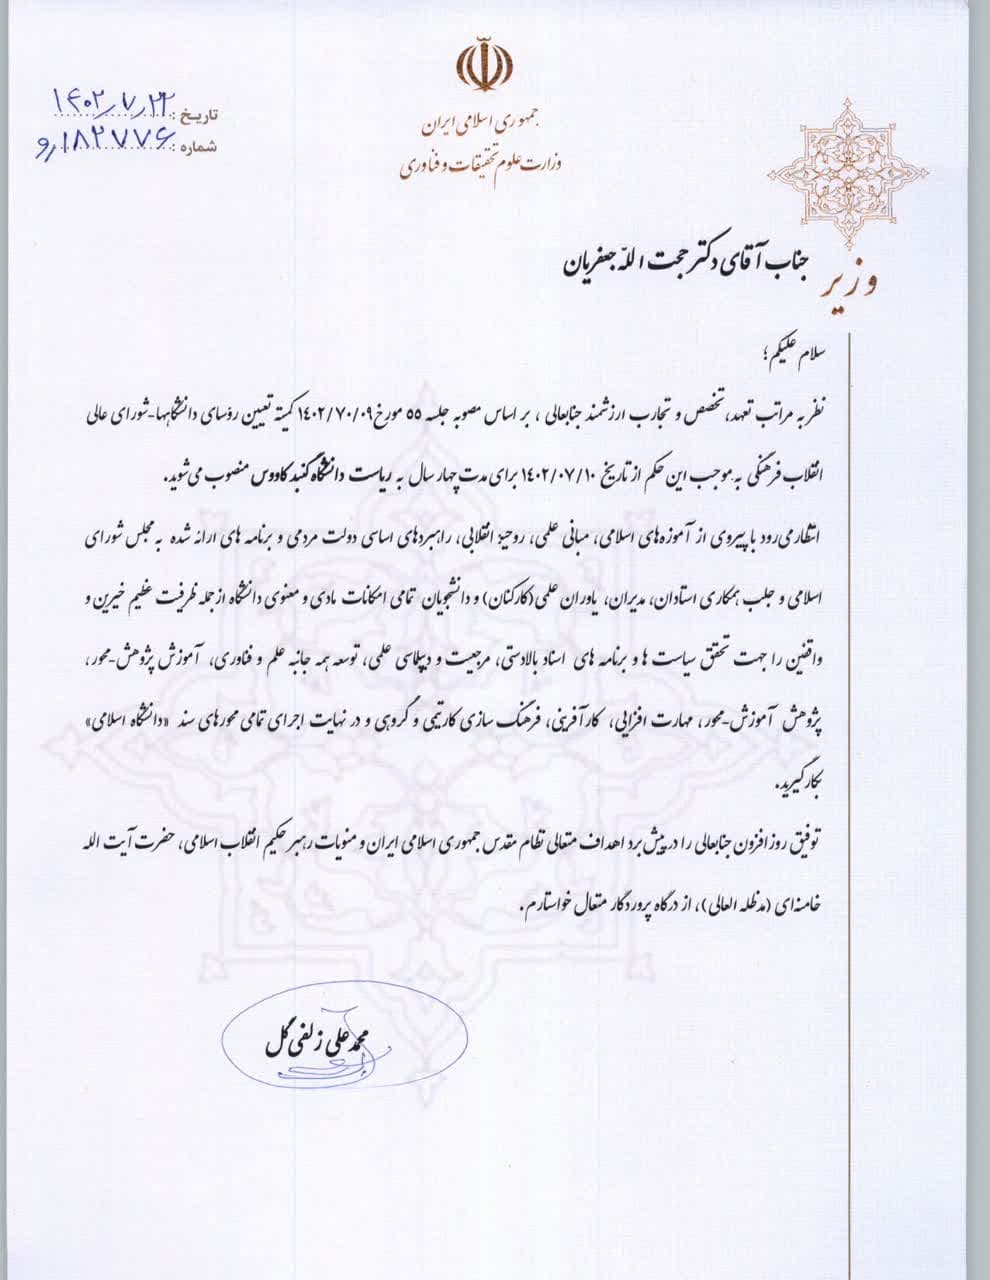 جمهوری اسلامی ایران
وزارت علوم تحقیقات و فناوری
تاریخ: ۱۴۰۲/۷/۲۲
شماره: ۱۸۲۷۷۶/و
وزیر
جناب آقای دکتر حجت الله جعفریان
سلام علیکم؛
نظر به مراتب تعهد، تخصص و تجارب ارزشمند جنابعالی، بر اساس مصوبه جلسه ۵۵ مورخ ۱۴۰۲/۷۰/۰۹ کمیته تعیین رؤسای دانشگاهها-شورای عالی
انقلاب فرهنگی به موجب این حکم از تاریخ ۱۴۰۲/۰۷/۱۰ برای مدت چهار سال به ریاست دانشگاه گنبد کاووس منصوب می‌شوید.
انتظار می‌رود با پیروی از آموزه‌های اسلامی، مبانی علمی، روحیۀ انقلابی، راهبردهای اساسی دولت مردمی و برنامه های ارائه شده به مجلس شورای
اسلامی و جلب همکاری استادان، مدیران، یاوران علمی(کارکنان) و دانشجویان تمامی امکانات مادی و معنوی دانشگاه از جمله ظرفیت عظیم خیرین و
واقفین را جهت تحقق سیاست ها و برنامه های اسناد بالادستی، مرجعیت و دیپلماسی علمی، توسعه همه جانبه علم و فناوری، آموزش پژوهش-محور،
پژوهش آموزش-محور، مهارت افزایی، کارآفرینی، فرهنگ سازی کار تیمی و گروهی و در نهایت اجرای تمامی محورهای سند «دانشگاه اسلامی»
بکار گیرید.
توفیق روز افزون جنابعالی را در پیش برد اهداف متعالی نظام مقدس جمهوری اسلامی ایران و منویات رهبر حکیم انقلاب اسلامی، حضرت آیت الله
خامنه‌ای (مدظله العالی)، از درگاه پروردگار متعال خواستارم.
محمدعلی زلفی گل